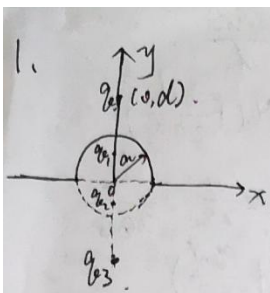 1.
y
q (0,d).
q1 a
o
q2
x
q3